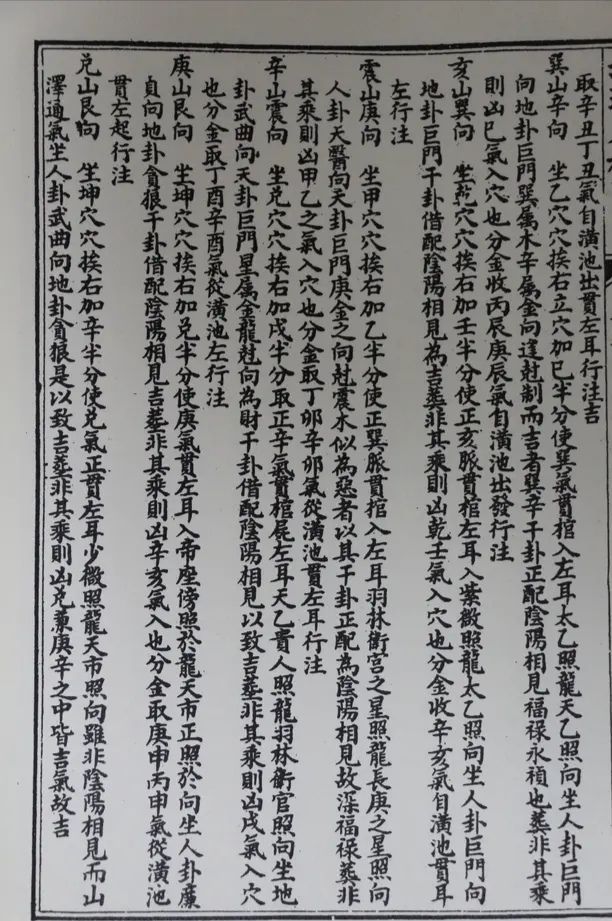 取辛丑丁丑氣自潢池出貫左耳行注吉
巽山辛向　坐乙穴穴挨右立穴加巳半分使巽氣貫棺入左耳太乙照龍天乙照向坐人卦巨門
向地卦巨門巽属木辛属金向逢尅制而吉者巽辛干卦正配陰陽相見福禄永禎也葬非其乘
則凶巳氣入穴也分金收丙辰庚辰氣自潢池出發行注
亥山巽向　坐乾穴穴挨右加壬半分使正亥脈貫棺左耳入紫微照龍太乙照向坐人卦巨門向
地卦巨門干卦借配陰陽相見為吉葬非其乘則凶乾壬氣入穴也分金收辛亥氣自潢池貫耳
左行注
震山庚向　坐甲穴穴挨右加乙半分使正巽脈貫棺入左耳羽林衛宮之星照龍長庚之星照向
人卦天醫向天卦巨門庚金之向尅震木似為惡者以其干卦正配為陰陽相見故深福禄葬非
其乘則凶甲乙之氣入穴也分金取丁卯辛卯氣從潢池貫左耳行注
辛山震向　坐兌穴穴挨右加戌半分取正辛氣貫棺屍左耳天乙貴人照龍羽林衛官照向坐地
卦武曲向天卦巨門星属金龍尅向為財干卦借配陰陽相見以致吉葬非其乘則凶戌氣入穴
也分金取丁酉辛酉氣從潢池左行注
庚山艮向　坐坤穴穴挨右加兌半分使庚氣貫左耳入帝座傍照於龍天市正照於向坐人卦廉
貞向地卦貪狼干卦借配陰陽相見吉葬非其乘則凶辛亥氣入也分金取庚申丙申氣從潢池
貫左起行注
兌山艮向　坐坤穴穴挨右加辛半分使兌氣正貫左耳少微照龍天市照向雖非陰陽相見而山
澤通氣坐人卦武曲向地卦貪狼是以致吉葬非其乘則凶兌兼庚辛之中皆吉氣故吉